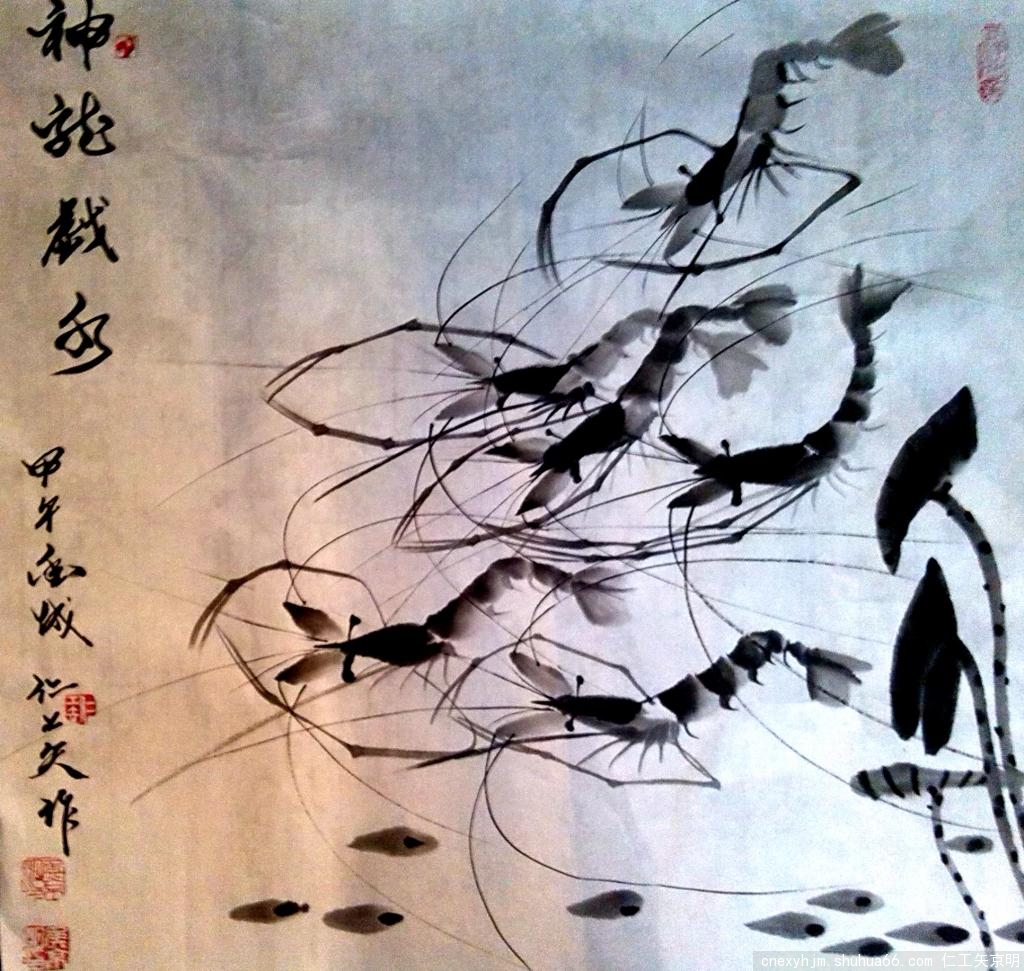 神龍戲水
甲午 城 仁工矢 作
cnexyhjm.shuhua66.com 仁工矢京明